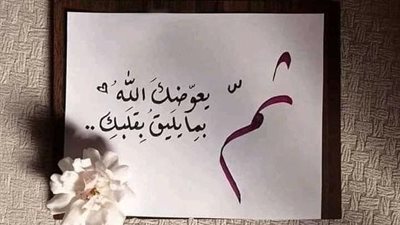 ثمّ
يعوّضكَ اللهُ
بما يليقُ بِقلبكِ ..